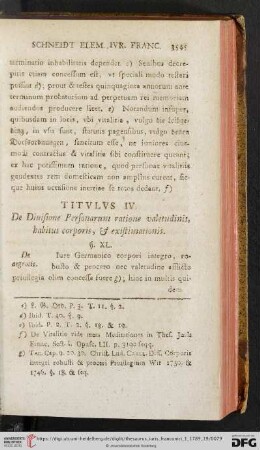 SCHNEIDT ELEM. IVR. FRANC.
terminatio inhabilitatis dependet. c) Senibus decre-
piti etiam concessum est, ut speciali modo testari
possint d); prout & testes quinquaginta annorum ante
terminum probatorium ad perpetuam rei memoriam
audiendos producere licet, e) Notandum insuper,
quibusdam in locis, ubi vitalitia, vulgo die
in usu sunt, statutis paganis, vulgo denen
Dorfsordnungen, sancitum esse, ne iuniores eius-
modi contractus & vitalitia sibi constituere queant;
ex hac potissimum ratione, quod personae vitalitiis
gaudentes rem domesticam non amplius curent, sic-
que huius occasione inertiae se totos dedant. f)
TITVLVS IV
De Divisione Personarum ratione valetudinis,
habitus corporis, & existimationis.
§. XL.
De
aegrotis.
Iure Germanico corpori integro, ro-
busto & procero nec valetudine afflicto
privilegia olim concessa fuere g); hinc in multis qui-
dem
c) P. 3. T. 11. §. 2.
d) Ibid. T. 40. §. 9.
e) Ibid. P. 2. T. 2. §. 18. & 19.
f) De Vitalitiis vide meas Meditationes in Thes. Juris
Franc. Sect. 1. Opusc. LII. p. seqq.
g) Tac. Cap. 20. 30. Christ. Lud. Diss. Corporis
integri robusti & proceri Privilegium Wit. 1739. &
1746. §. 18. & seq.
UNIVERSITÄTS-
BIBLIOTHEK
HEIDELBERG
© Universitätsbibliothek Heidelberg
DFG